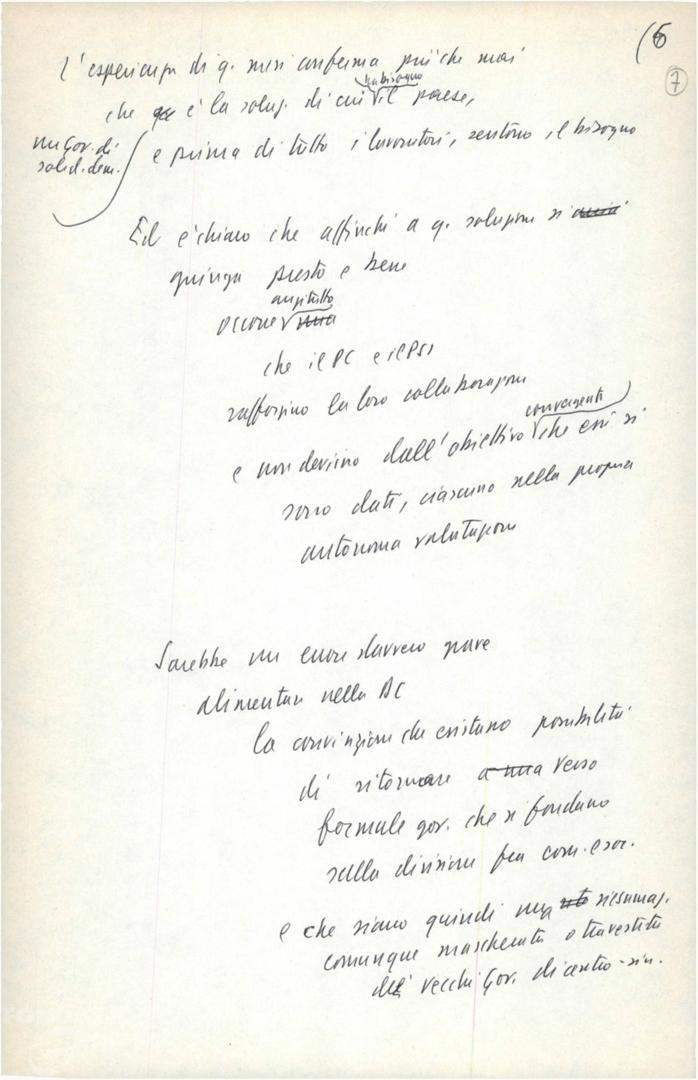 (6
7
L'esperienza di q. mesi conferma più che mai
ha bisogno
che è la soluz. di cui il paese,
un Gov. di
solid. dem.
e prima di tutto i lavoratori, sentono il bisogno
Ed è chiaro che affinché a q. soluzione si
giunga presto e bene
anzitutto
occorre
che il PC e il PSI
rafforzino la loro collaborazione
convergenti
e non devino dall'obiettivo che essi si
sono dati, ciascuno nella propria
autonoma valutazione
Sarebbe un errore davvero grave
alimentare nella DC
la convinzione che esistano possibilità
di ritornare verso
formule gov. che si fondano
sulla divisione fra com. e soc.
e che siano quindi una riesumaz.
comunque mascherata o travestita
dei vecchi Gov. di centro-sin.